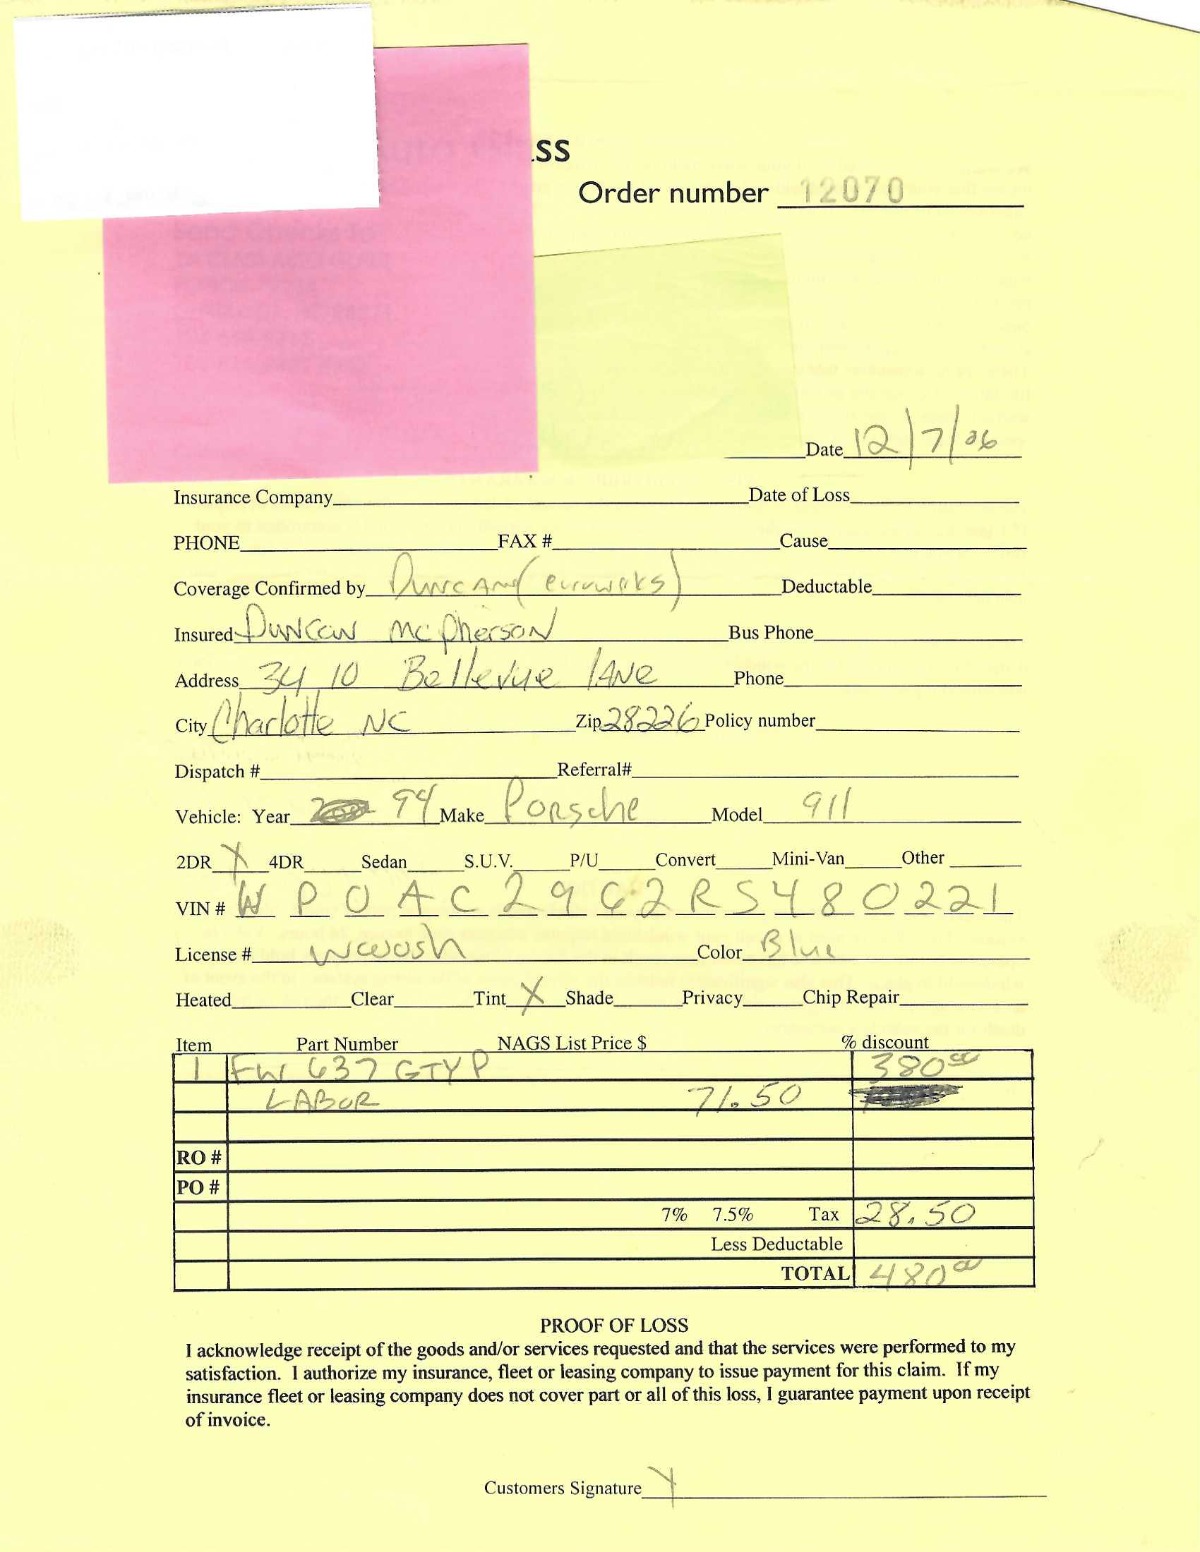 SS
Order number 12070
Date 12/7/06
Insurance Company Date of Loss
PHONE FAX # Cause
Coverage Confirmed by Duncan (euroworks) Deductable
Insured Duncan McPherson Bus Phone
Address 3410 Bellevue Lane Phone
City Charlotte NC Zip 28226 Policy number
Dispatch # Referral#
Vehicle: Year 94 Make Porsche Model 911
2DR X 4DR Sedan S.U.V. P/U Convert Mini-Van Other
VIN # W P O A C 2 9 6 2 R S 4 8 0 2 2 1
License # Color Blue
Heated Clear Tint X Shade Privacy Chip Repair
Item Part Number NAGS List Price $ % discount
1 FW 637 GTYP 380.00
LABOR 71.50
RO #
PO #
7% 7.5% Tax 28.50
Less Deductable
TOTAL 480.00
PROOF OF LOSS
I acknowledge receipt of the goods and/or services requested and that the services were performed to my
satisfaction. I authorize my insurance, fleet or leasing company to issue payment for this claim. If my
insurance fleet or leasing company does not cover part or all of this loss, I guarantee payment upon receipt
of invoice.
Customers Signature X